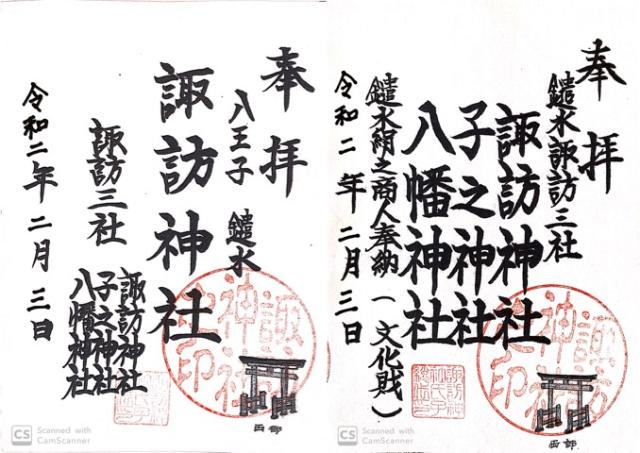 奉拝
八王子 鑓水
諏訪神社
諏訪三社
諏訪神社
子之神社
八幡神社
令和二年二月三日
諏訪神社之印
西部
CS Scanned with
CamScanner
奉拝
鑓水諏訪三社
諏訪神社
子之神社
八幡神社
鑓水絹之商人奉納(文化財)
令和二年二月三日
諏訪神社之印
西部
CS Scanned with
CamScanner